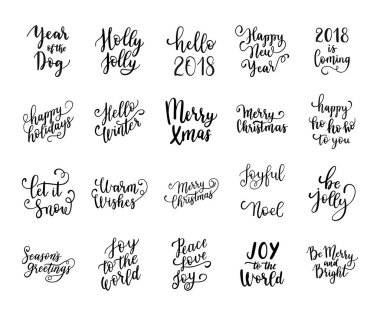 Year
of the
Dog
Holly
Jolly
hello
2018
Happy
New
Year
2018
is
Coming
happy
holidays
Hello
Winter
Merry
Xmas
Merry
Christmas
happy
ho ho ho
to you
Let it
Snow
Warm
Wishes
Merry
Christmas
Joyful
Noel
be
Jolly
Season's
Greetings
Joy
to the
World
Peace
Love
Joy
JOY
to the
World
Be Merry
and
Bright